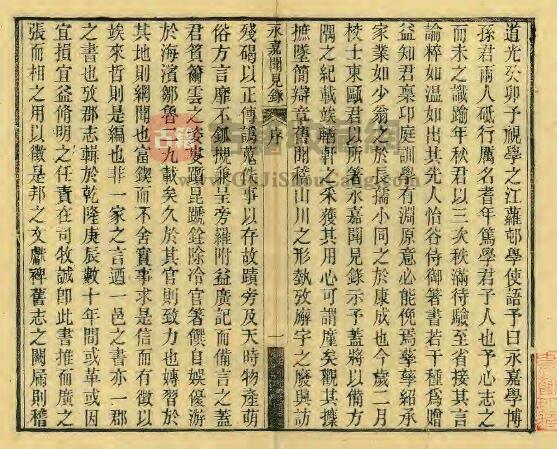 道光癸卯予視學之江蘿邨學使語予曰永嘉學博
孫君雨人砥行厲名耆年篤學君子人也予心志之
而未之識踰年秋君以三次秋滿待驗至省接其言
論粹如溫如出其先人怡谷侍御箸書若干種爲贈
益知君稟印庭訓學有淵原意必能俛焉孳孳紹承
家業如少翁之於長孺小同之於康成也今歲二月
校士東甌君以所箸永嘉聞見錄示予蓋將以備方
隅之紀載竢輶軒之采獲其用心可謂廑矣觀其攈
摭墜簡辯章舊聞稽山川之形埶攷廨宇之廢興訪
永嘉聞見錄 序 一
殘碣以正傳譌蒐佚事以存故蹟旁及天時物產萌
俗方言靡不𨥧槻兼呈旁羅附益廣記而備言之蓋
於海濱鄒魯者九載矣久於其官則致力也專習於
其地則網聞也富鍥而不舍實事求是信而有徵以
竢來哲則是編也非一家之言迺一邑之書亦一郡
之書也攷郡志輯於乾隆庚辰數十年間或革或因
宜損宜益脩明之任責在司牧誠卽此書推而廣之
張而相之用以徵是邦之文獻裨舊志之闕扄則稽